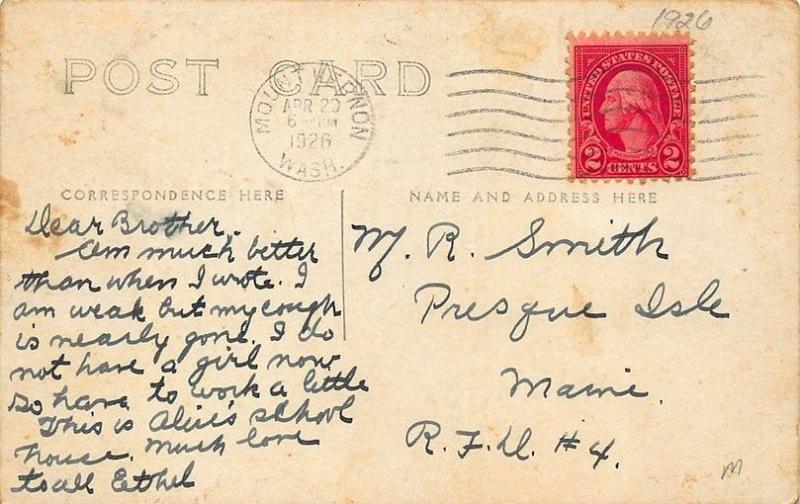 1926
POST CARD
MOUNT VERNON
APR 20
6 PM
1926
WASH.
UNITED STATES POSTAGE
WASHINGTON
2 CENTS 2
CORRESPONDENCE HERE
NAME AND ADDRESS HERE
Dear Brother,
Am much better
than when I wrote. I
am weak but my cough
is nearly gone. I do
not have a girl now
so have to work a little
This is Alice's school
house. Much love
to all Eethel
M. R. Smith
Presque Isle
Maine.
R.F.D. #4.
M